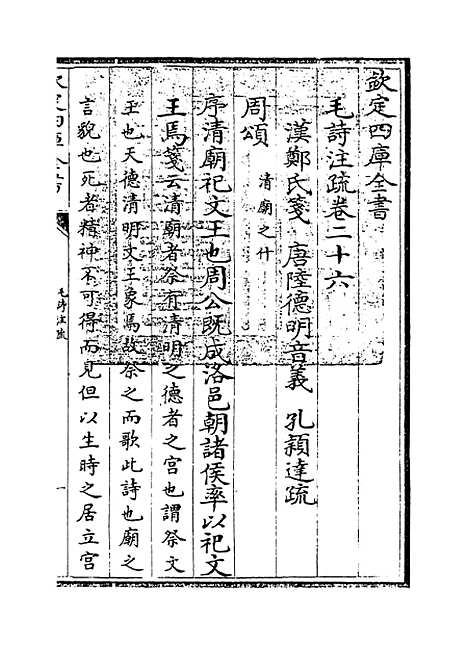 欽定四庫全書
毛詩注疏卷二十六
漢鄭氏箋　唐陸德明音義　孔穎達疏
周頌　清廟之什
序清廟祀文王也周公既成洛邑朝諸侯率以祀文
王焉箋云清廟者祭有清明之德者之宫也謂祭文
王也天德清明文王象焉故祭之而歌此詩也廟之
言貌也死者精神不可得而見但以生時之居立宫
毛詩注疏
一